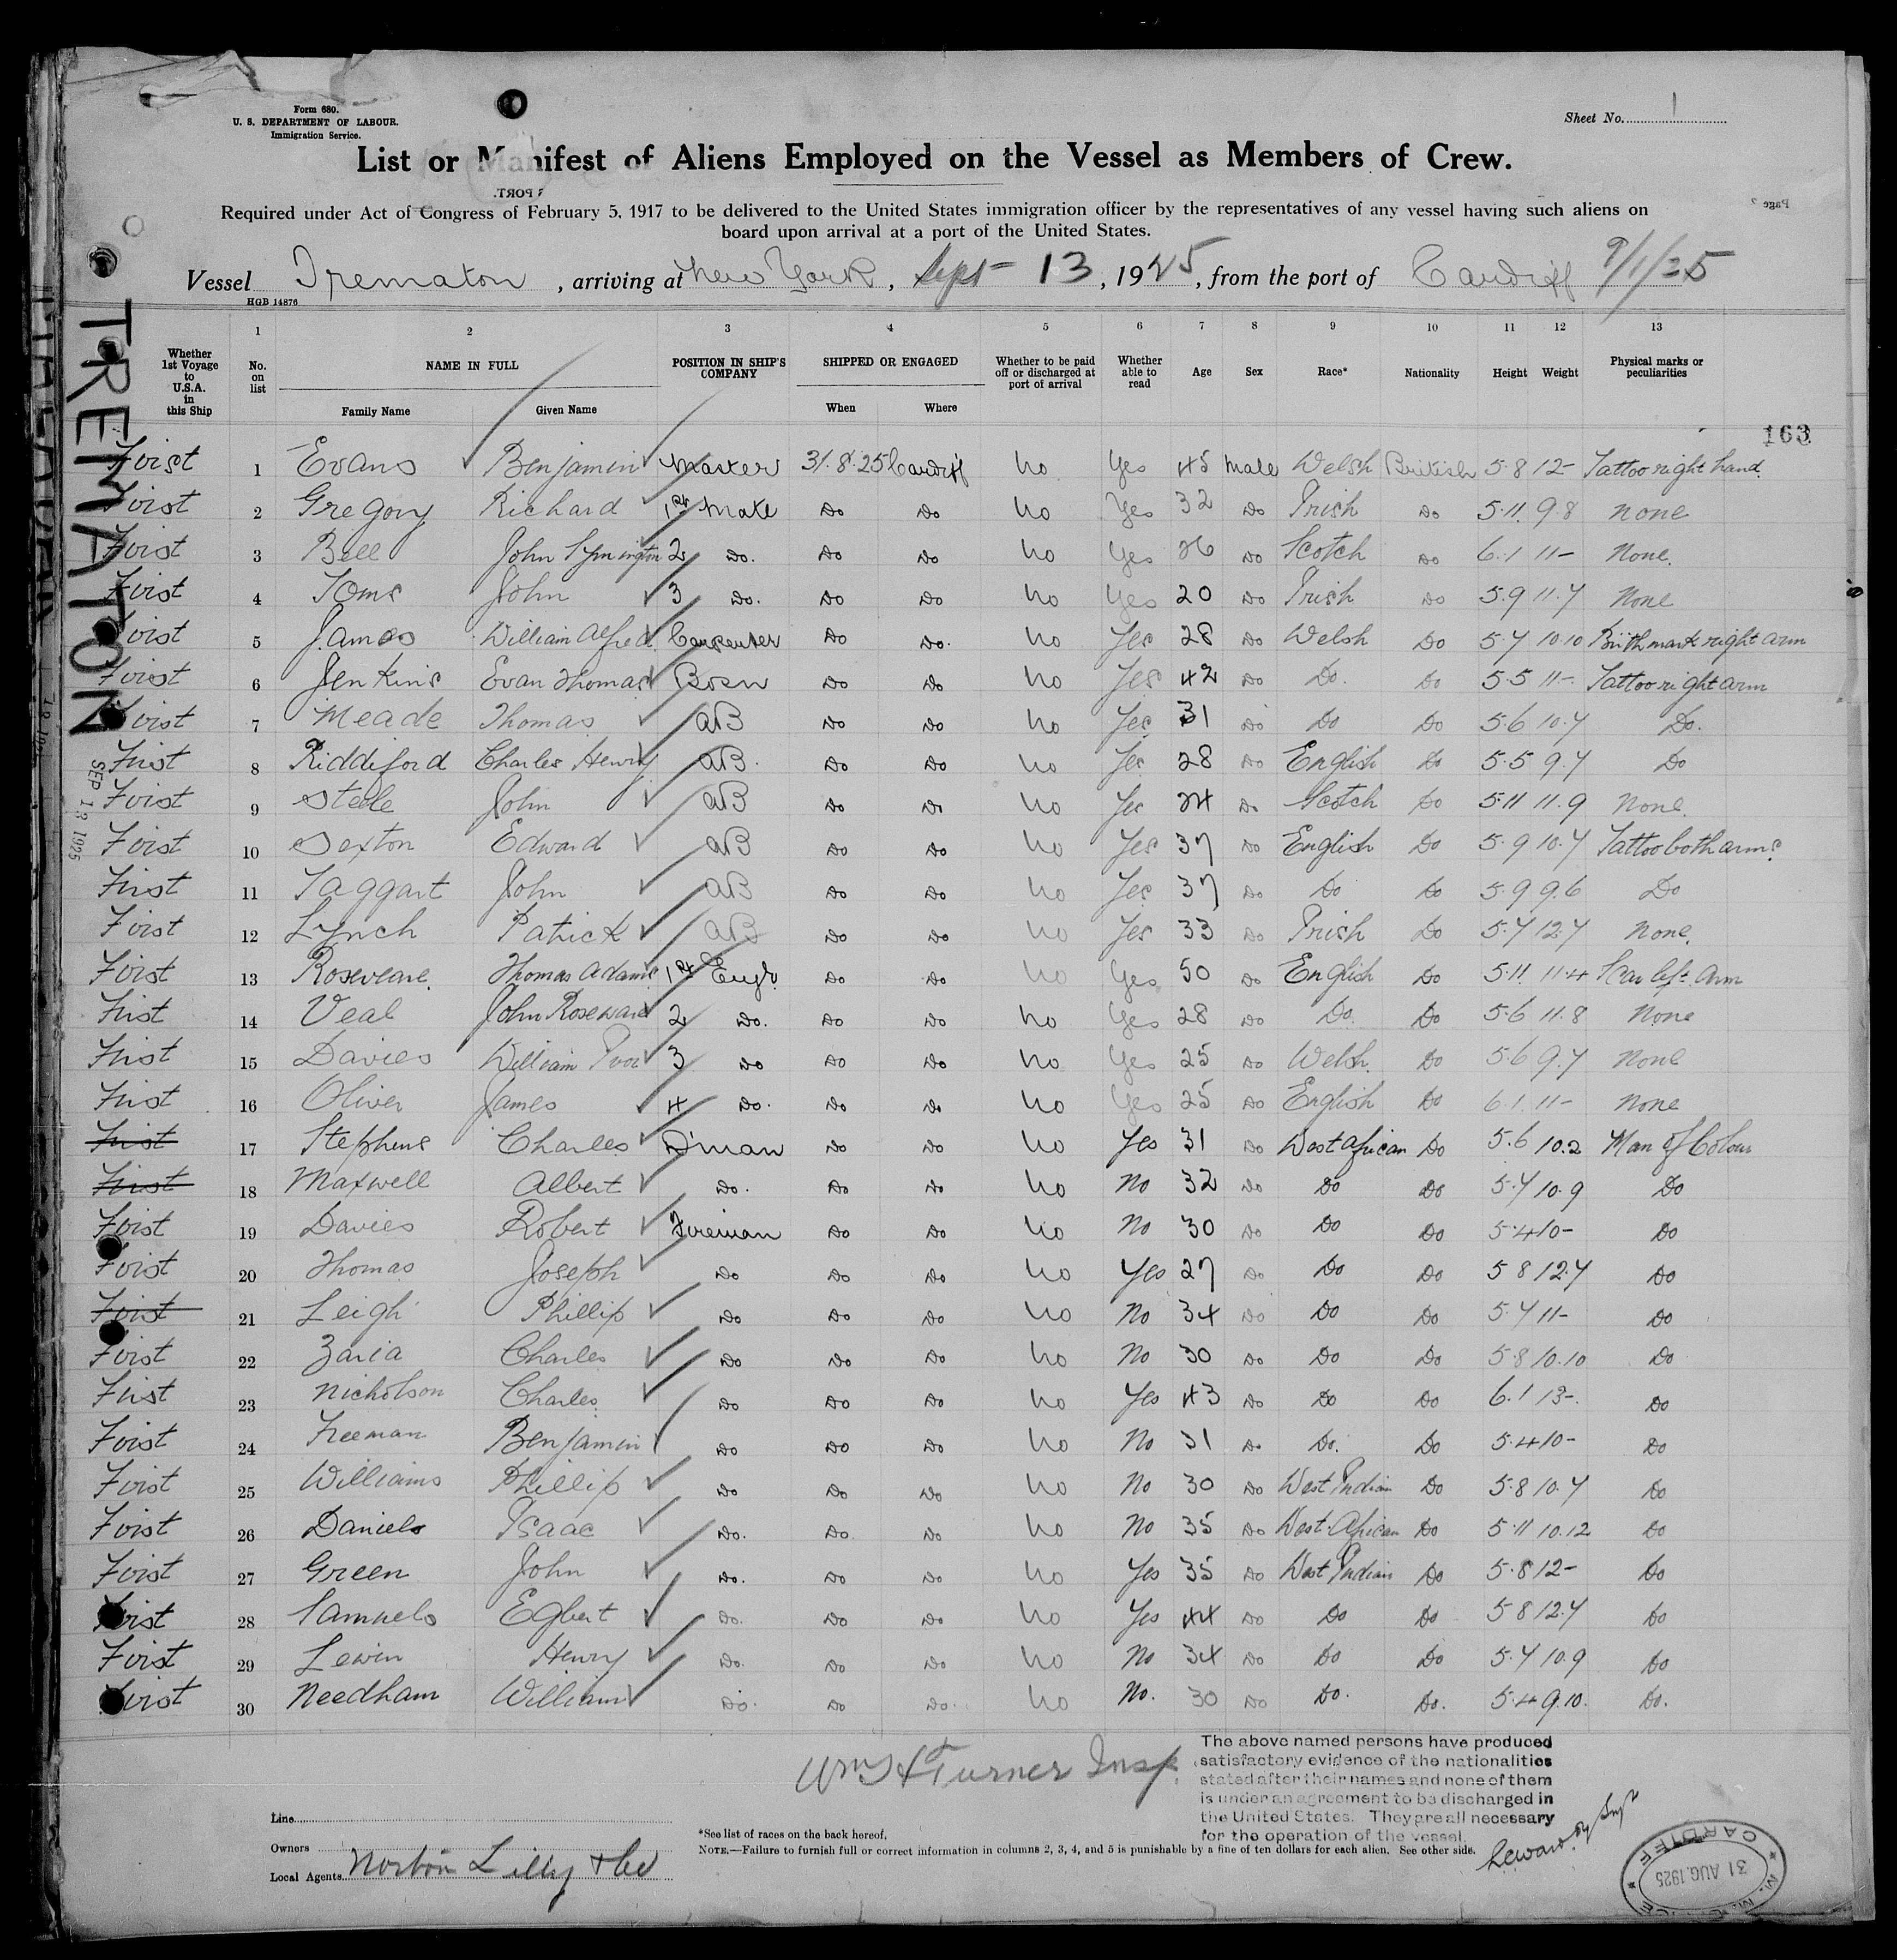 Form 680.
U. S. DEPARTMENT OF LABOUR.
Immigration Service.
Sheet No. 1
List or Manifest of Aliens Employed on the Vessel as Members of Crew.
Required under Act of Congress of February 5, 1917 to be delivered to the United States immigration officer by the representatives of any vessel having such aliens on
board upon arrival at a port of the United States.
Vessel Trematon, arriving at New York, Sept 13, 1925, from the port of Cardiff 9/1/25
HGB 14876
TREMATON
SEP 13 1925
1 2 3 4 5 6 7 8 9 10 11 12 13
Whether 1st Voyage to U.S.A. in this Ship No. on list NAME IN FULL POSITION IN SHIP'S COMPANY SHIPPED OR ENGAGED Whether to be paid off or discharged at port of arrival Whether able to read Age Sex Race* Nationality Height Weight Physical marks or peculiarities
Family Name Given Name When Where
163
First 1 Evans Benjamin Master 31.8.25 Cardiff No Yes 45 Male Welsh British 5.8 12- Tattoo right hand.
First 2 Gregory Richard 1st Mate Do Do No Yes 32 Do Irish Do 5.11. 9.8 None
First 3 Bell John Symington 2 Do. Do Do No Yes 26 Do Scotch Do 6.1 11- None.
First 4 Toms John 3 Do. Do Do No Yes 20 Do Irish Do 5.9 11.7 None
First 5 James William Alfred Carpenter Do Do. No Yes 28 Do Welsh Do 5.7 10.10 Birthmark right arm
First 6 Jenkins Evan Thomas Bosn Do Do No Yes 42 Do Do. Do 5.5 11-. Tattoo right arm
First 7 Meade Thomas AB Do Do No Yes 31 Do Do Do 5.6 10.7 Do.
First 8 Riddiford Charles Henry AB. Do Do No Yes 28 Do English Do 5.5 9.7 Do
First 9 Steele John AB Do Do No Yes 24 Do Scotch Do 5.11 11.9 None.
First 10 Sexton Edward AB Do Do No Yes 37 Do English Do 5.9 10.7 Tattoo both arms.
First 11 Taggart John AB Do Do No Yes 37 Do Do Do 5.9 9.6 Do
First 12 Lynch Patrick AB Do Do No Yes 33 Do Irish Do 5.7 12.7 None.
First 13 Roseveare. Thomas Adams 1st Engr. Do Do No Yes 50 Do English Do 5.11. 11.4 Scar left arm
First 14 Veal John 2 Do. Do Do No Yes 28 Do Do. Do 5.6 11.8 None
First 15 Davies William Ivor 3 Do Do Do No Yes 25 Do Welsh. Do 5.6 9.7 None
First 16 Oliver James 4 Do. Do Do No Yes 25 Do English Do 6.1 11- None
First 17 Stephens Charles D'man Do Do No Yes 31 Do West African Do 5.6 10.2 Man of Colour
First 18 Maxwell Albert Do. Do Do No No 32 Do Do Do 5.7 10.9 Do
First 19 Davies Robert Fireman Do Do No No 30 Do Do Do 5.4 10- Do
First 20 Thomas Joseph Do Do Do No Yes 27 Do Do Do 5 8 12.7 Do
First 21 Leigh Phillip Do Do Do No No 34 Do Do Do 5.7 11- Do
First 22 Zaria Charles Do Do Do No No 30 Do Do Do 5.8 10.10 Do
First 23 Nicholson Charles Do Do Do No Yes 43 Do Do Do 6.1 13-. Do
First 24 Freeman Benjamin Do Do Do No No 31 Do Do. Do 5.4 10- Do
First 25 Williams Phillip Do Do Do No No 30 Do West Indian Do 5.8 10.7 Do
First 26 Daniels Isaac Do. Do. Do No No 35 Do West African Do 5.11 10.12 Do
First 27 Green John Do. Do Do No Yes 35 Do West Indian Do 5.8 12- Do
First 28 Samuels Egbert Do. Do Do No Yes 44 Do Do Do 5 8 12.7 Do
First 29 Lewin Henry Do. Do Do No No 34 Do Do Do 5.7 10.9 Do
First 30 Needham William Do. Do Do. No No. 30 Do Do. Do. 5.4 9.10. Do.
Wm H Turner Insp.
The above named persons have produced
satisfactory evidence of the nationalities
stated after their names and none of them
is under an agreement to be discharged in
the United States. They are all necessary
for the operation of the vessel.
Line
Owners
Local Agents Norton Lilly & Co
*See list of races on the back hereof.
NOTE.—Failure to furnish full or correct information in columns 2, 3, 4, and 5 is punishable by a fine of ten dollars for each alien. See other side.
CARDIFF
31 AUG. 1925